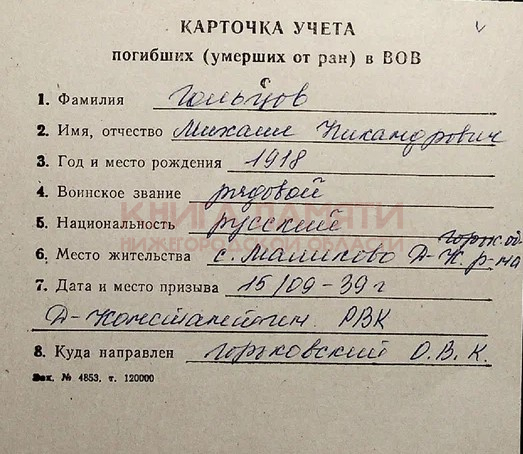 КАРТОЧКА УЧЕТА
погибших (умерших от ран) в ВОВ
1. Фамилия Гольцов
2. Имя, отчество Михаил Никандрович
3. Год и место рождения 1918
4. Воинское звание рядовой
КНИГА ПАМЯТИ
5. Национальность русский
НИЖЕГОРОДСКОЙ ОБЛАСТИ
горьк. об.
6. Место жительства с. Маликово Д-К. р-на
7. Дата и место призыва 15/09-39 г
Д-Константин. РВК
8. Куда направлен Горьковский О.В.К.
Зак. № 4853, т. 120000